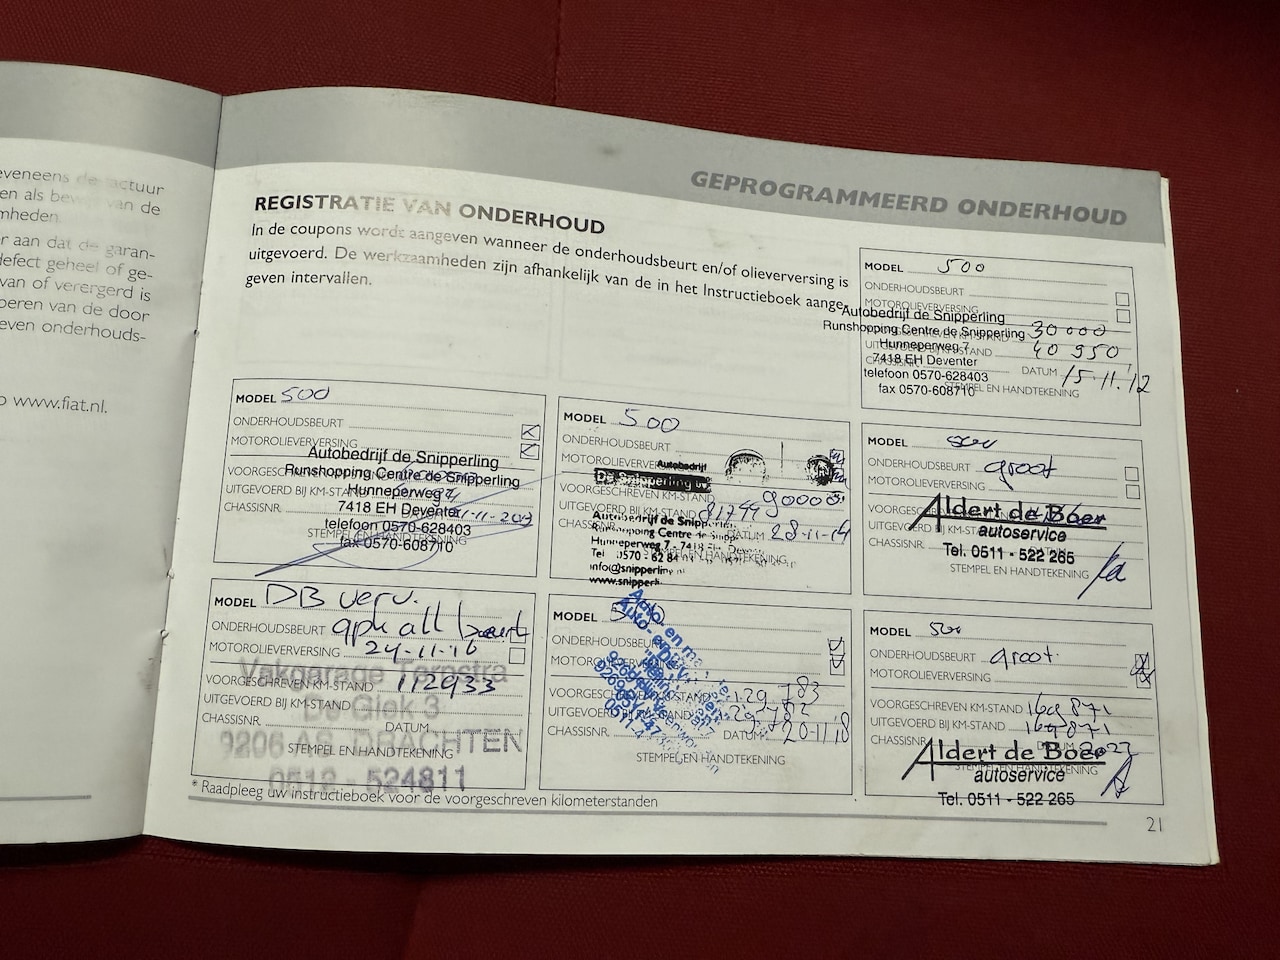 eveneens de factuur
en als bewijs van de
mheden
r aan dat de garan-
defect geheel of ge-
van of verergerd is
oeren van de door
even onderhouds-
o www.fiat.nl.
GEPROGRAMMEERD ONDERHOUD
REGISTRATIE VAN ONDERHOUD
In de coupons wordt aangeven wanneer de onderhoudsbeurt en/of olieverversing is
uitgevoerd. De werkzaamheden zijn afhankelijk van de in het Instructieboek aange-
geven intervallen.
MODEL 500
ONDERHOUDSBEURT
MOTOROLIEVERVERSING
Autobedrijf de Snipperling
Runshopping Centre de Snipperling 30000
Hunneperweg 7
UITGEVOERD BIJ KM-STAND 40 950
7418 EH Deventer
CHASSISNR. DATUM 15.11.12
telefoon 0570-628403
STEMPEL EN HANDTEKENING
fax 0570-608710
MODEL 500
ONDERHOUDSBEURT
MOTOROLIEVERVERSING
Autobedrijf de Snipperling
Runshopping Centre de Snipperling
VOORGESCHREVEN KM-STAND
Hunneperweg 7
UITGEVOERD BIJ KM-STAND
7418 EH Deventer
CHASSISNR.
telefoon 0570-628403
STEMPEL EN HANDTEKENING
fax 0570-608710
MODEL 500
ONDERHOUDSBEURT
MOTOROLIEVERVERSING
Autobedrijf
De Snipperling bv
VOORGESCHREVEN KM-STAND 90000
UITGEVOERD BIJ KM-STAND 81744
Autobedrijf de Snipperling
CHASSISNR. DATUM 28-11-14
Runshopping Centre de Snipperling
Hunneperweg 7 - 7418
STEMPEL EN HANDTEKENING
info@snipperling.nl
MODEL 500
ONDERHOUDSBEURT groot
MOTOROLIEVERVERSING
Aldert de Boer
autoservice
UITGEVOERD BIJ KM-STAND
CHASSISNR.
Tel. 0511 - 522 265
STEMPEL EN HANDTEKENING
MODEL DB verv.
ONDERHOUDSBEURT apk all beurt
MOTOROLIEVERVERSING 24-11-16
Vakgarage Terpstra
VOORGESCHREVEN KM-STAND 112933
UITGEVOERD BIJ KM-STAND
De Giek 3
CHASSISNR. DATUM
9206 AS DRACHTEN
STEMPEL EN HANDTEKENING
0512 - 524811
MODEL 500
ONDERHOUDSBEURT
MOTOROLIEVERVERSING
VOORGESCHREVEN KM-STAND
UITGEVOERD BIJ KM-STAND
CHASSISNR. DATUM 20-11-18
STEMPEL EN HANDTEKENING
MODEL 500
ONDERHOUDSBEURT groot
MOTOROLIEVERVERSING
VOORGESCHREVEN KM-STAND 169871
UITGEVOERD BIJ KM-STAND 169871
CHASSISNR. DATUM
Aldert de Boer
autoservice
Tel. 0511 - 522 265
* Raadpleeg uw instructieboek voor de voorgeschreven kilometerstanden
21